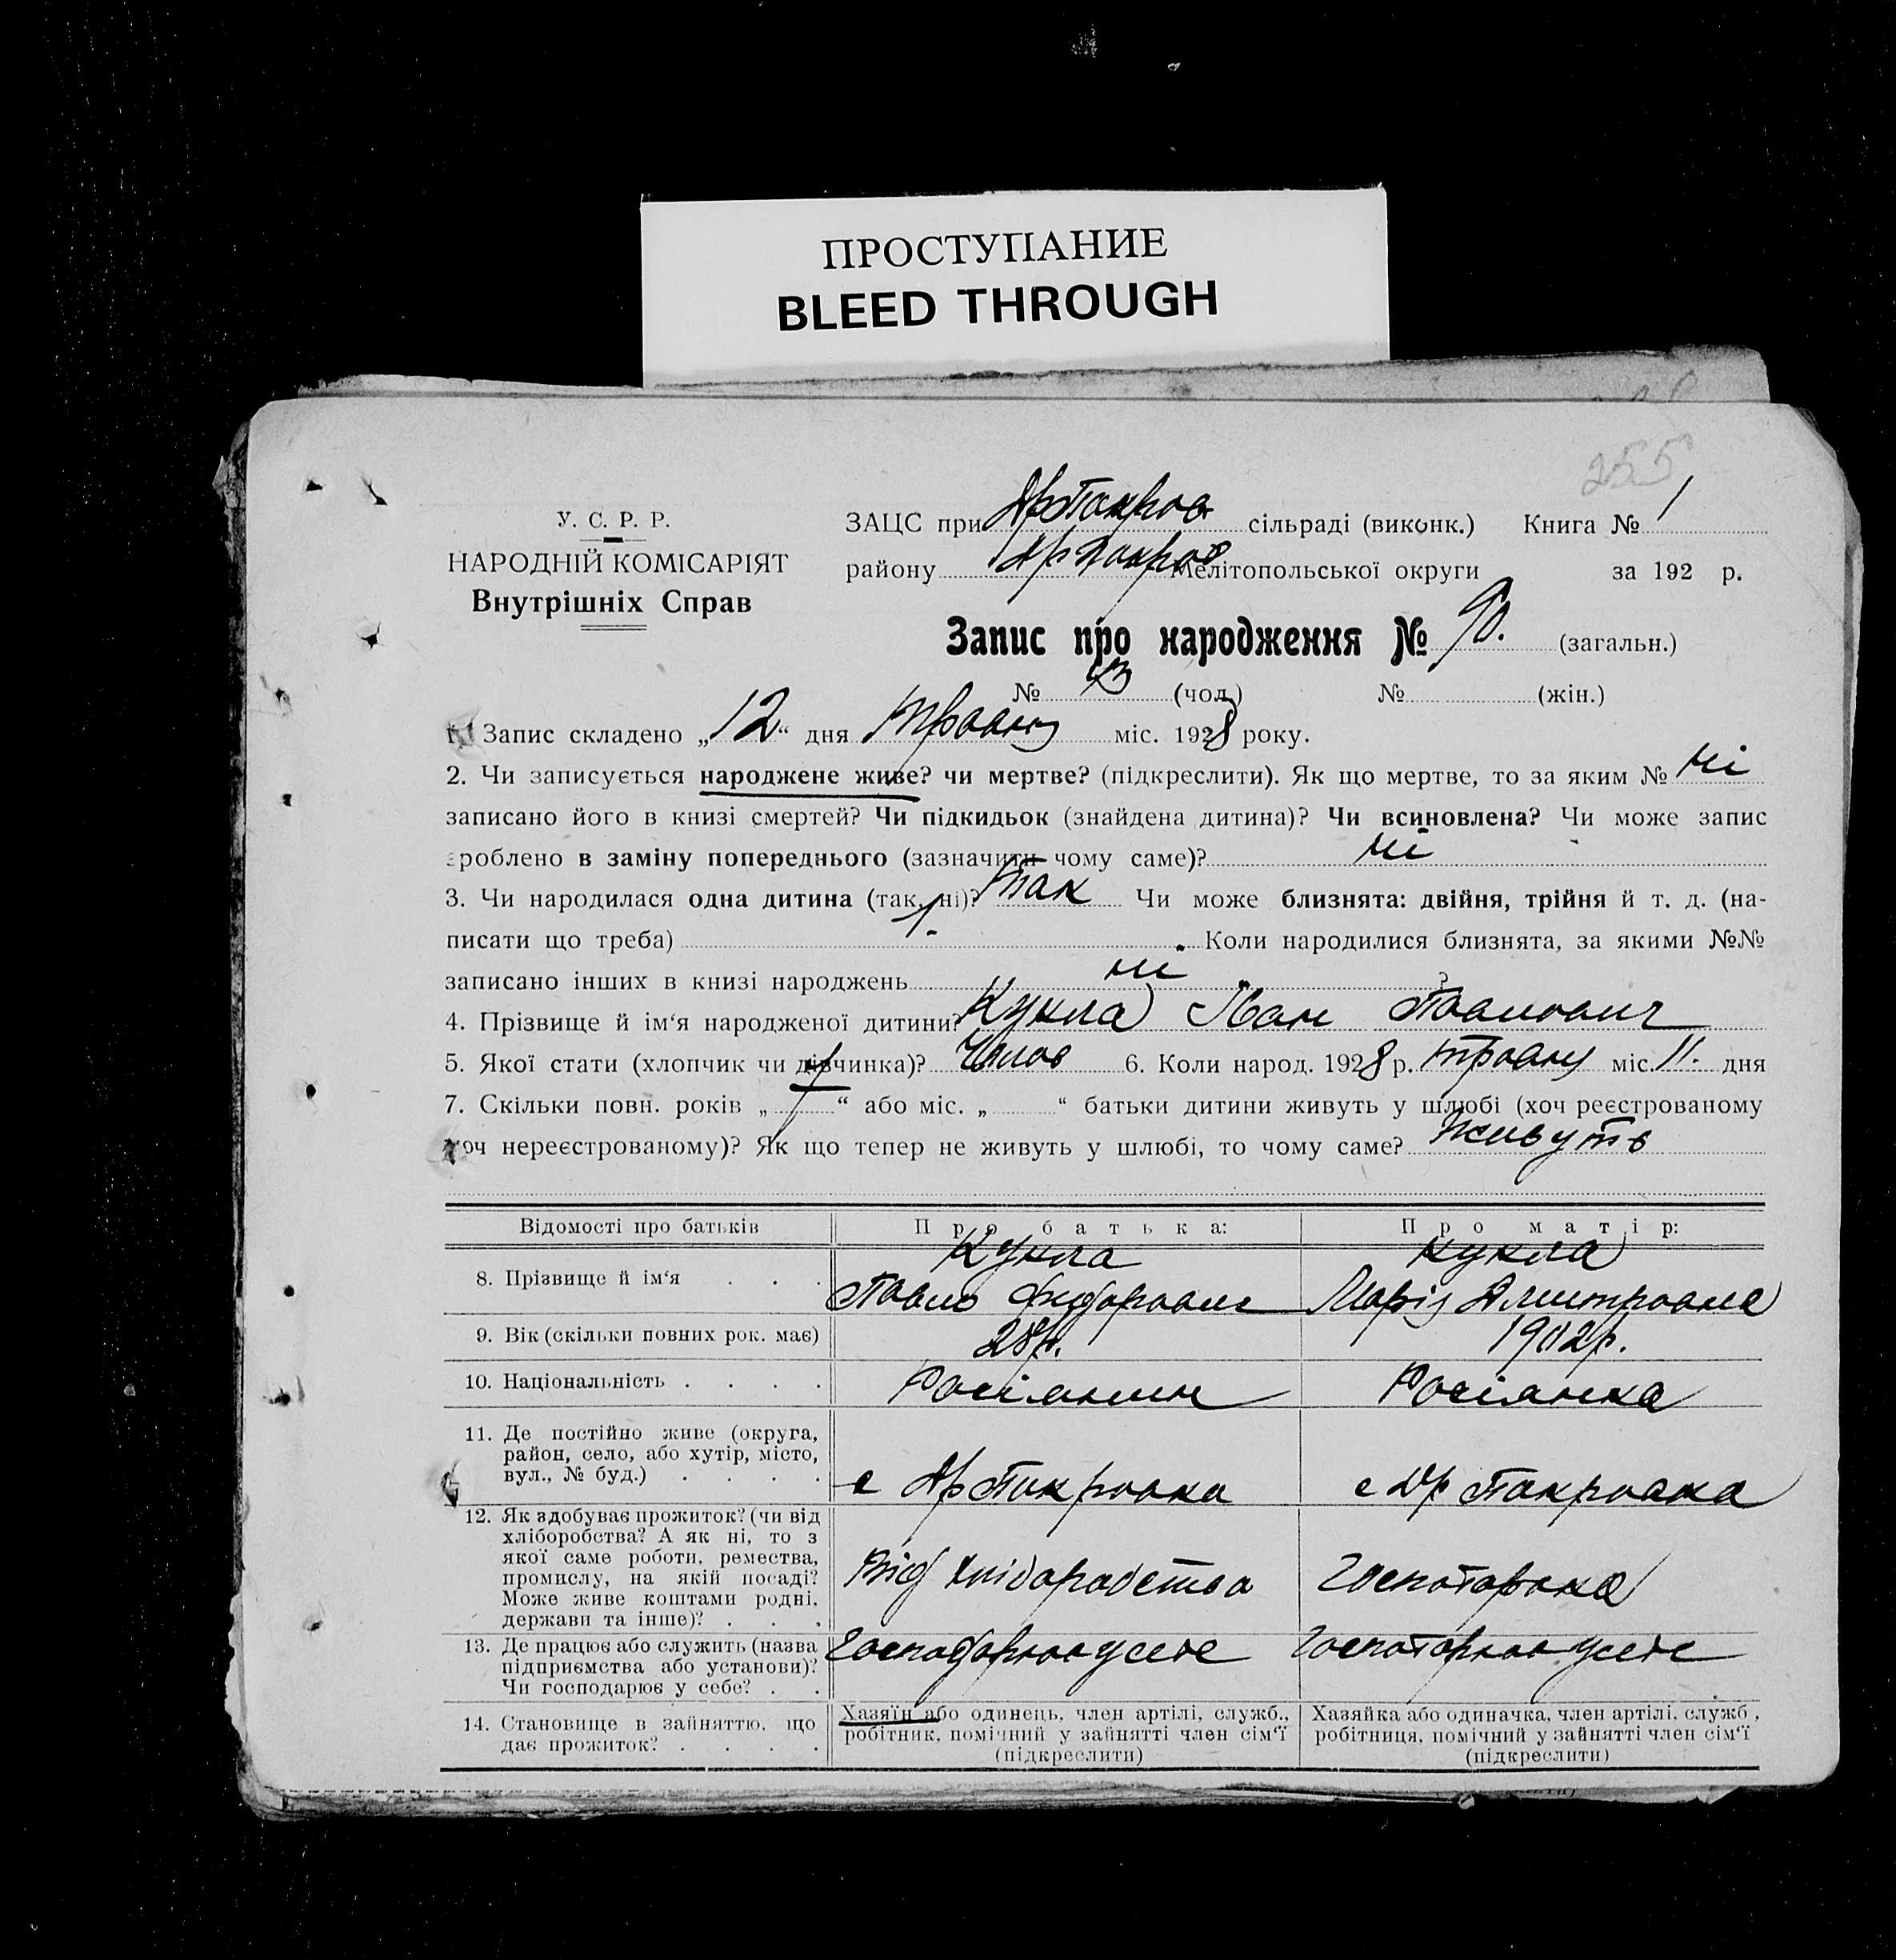 ПРОСТУПАНИЕ
BLEED THROUGH
255
У. С. Р. Р.
НАРОДНІЙ КОМІСАРІЯТ
Внутрішніх Справ
ЗАЦС при сільраді (виконк.) Книга № 1
району Мелітопольської округи за 192 р.
Запис про народження № 90. (загальн.)
№ (чол.) № (жін.)
1. Запис складено „12“ дня травня міс. 1928 року.
2. Чи записується народжене живе? чи мертве? (підкреслити). Як що мертве, то за яким № ні
записано його в книзі смертей? Чи підкидьок (знайдена дитина)? Чи всиновлена? Чи може запис
зроблено в заміну попереднього (зазначити чому саме)? ні
3. Чи народилася одна дитина (так, ні)? так Чи може близнята: двійня, трійня й т. д. (на-
писати що треба) Коли народилися близнята, за якими №№
записано інших в книзі народжень ні ?
4. Прізвище й ім‘я народженої дитини? Кукла Іван Павлович
5. Якої стати (хлопчик чи дівчинка)? Чолов 6. Коли народ. 1928 р. травня міс. 11. дня
7. Скільки повн. років „ “ або міс. „ “ батьки дитини живуть у шлюбі (хоч реєстрованому
хоч нереєстрованому)? Як що тепер не живуть у шлюбі, то чому саме? Живуть
Відомості про батьків Про батька: Про матір:
8. Прізвище й ім‘я . . . Кукла Кукла
Павло Федорович Марія Дмитровна
9. Вік (скільки повних рок. має) 28р. 1902р.
10. Національність . . . . Росіянин Росіянка
11. Де постійно живе (округа,
район, село, або хутір, місто,
вул., № буд.) . . . . с Др Покровка с Др Покровка
12. Як здобуває прожиток? (чи від
хліборобства? А як ні, то з
якої саме роботи, ремества,
промислу, на якій посаді?
Може живе коштами родні,
держави та інше)? . . . Від хліборобства
13. Де працює або служить (назва
підприємства або установи)?
Чи господарює у себе? . .
14. Становище в зайняттю, що
дає прожиток? . . . .
Хазяїн або одинець, член артілі, служб.,
робітник, помічний у зайнятті член сім‘ї
(підкреслити)
Хазяйка або одиначка, член артілі, служб.,
робітниця, помічний у зайнятті член сім‘ї
(підкреслити)